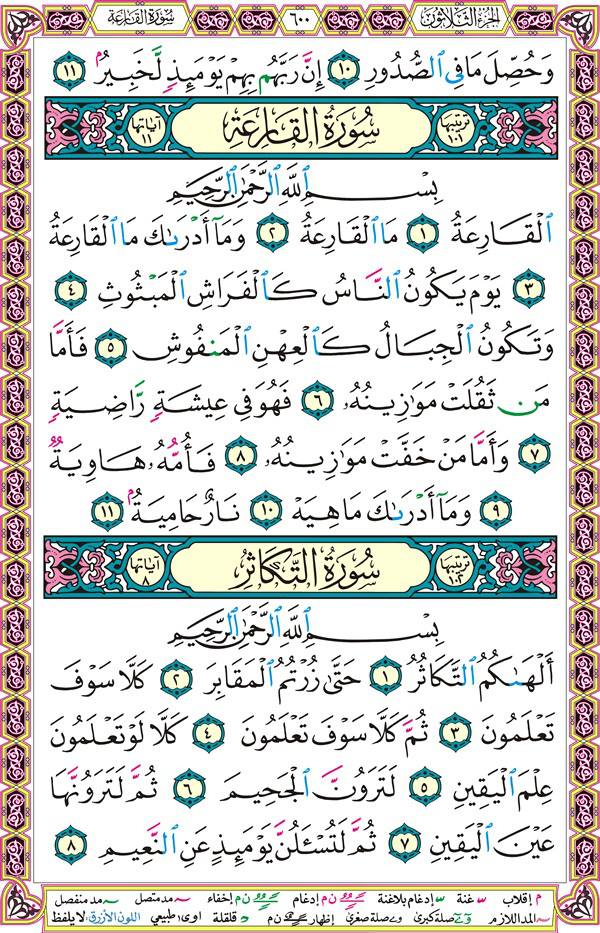 الجزء الثلاثون
٦٠٠
سورة القارعة
وَحُصِّلَ مَا فِي ٱلصُّدُورِ ١٠ إِنَّ رَبَّهُم بِهِمْ يَوْمَئِذٍ لَّخَبِيرٌۢ ١١
ترتيبها ١٠١
سُورَةُ القَارِعَةِ
آياتها ١١
بِسْمِ ٱللَّهِ ٱلرَّحْمَٰنِ ٱلرَّحِيمِ
ٱلْقَارِعَةُ ١ مَا ٱلْقَارِعَةُ ٢ وَمَآ أَدْرَىٰكَ مَا ٱلْقَارِعَةُ
٣ يَوْمَ يَكُونُ ٱلنَّاسُ كَٱلْفَرَاشِ ٱلْمَبْثُوثِ ٤
وَتَكُونُ ٱلْجِبَالُ كَٱلْعِهْنِ ٱلْمَنفُوشِ ٥ فَأَمَّا
مَن ثَقُلَتْ مَوَٰزِينُهُۥ ٦ فَهُوَ فِي عِيشَةٍ رَّاضِيَةٍ
٧ وَأَمَّا مَنْ خَفَّتْ مَوَٰزِينُهُۥ ٨ فَأُمُّهُۥ هَاوِيَةٌ
٩ وَمَآ أَدْرَىٰكَ مَا هِيَهْ ١٠ نَارٌ حَامِيَةٌۢ ١١
ترتيبها ١٠٢
سُورَةُ التَّكَاثُرِ
آياتها ٨
بِسْمِ ٱللَّهِ ٱلرَّحْمَٰنِ ٱلرَّحِيمِ
أَلْهَىٰكُمُ ٱلتَّكَاثُرُ ١ حَتَّىٰ زُرْتُمُ ٱلْمَقَابِرَ ٢ كَلَّا سَوْفَ
تَعْلَمُونَ ٣ ثُمَّ كَلَّا سَوْفَ تَعْلَمُونَ ٤ كَلَّا لَوْ تَعْلَمُونَ
عِلْمَ ٱلْيَقِينِ ٥ لَتَرَوُنَّ ٱلْجَحِيمَ ٦ ثُمَّ لَتَرَوُنَّهَا
عَيْنَ ٱلْيَقِينِ ٧ ثُمَّ لَتُسْـَٔلُنَّ يَوْمَئِذٍ عَنِ ٱلنَّعِيمِ ٨
م إقلاب غنة إدغام بلاغنة ن م إدغام ن م إخفاء مد متصل مد منفصل
المد اللازم صلة كبرى صلة صغرى إظهار ن م قلقلة اوى طبيعي اللون الأزرق: لا يلفظ